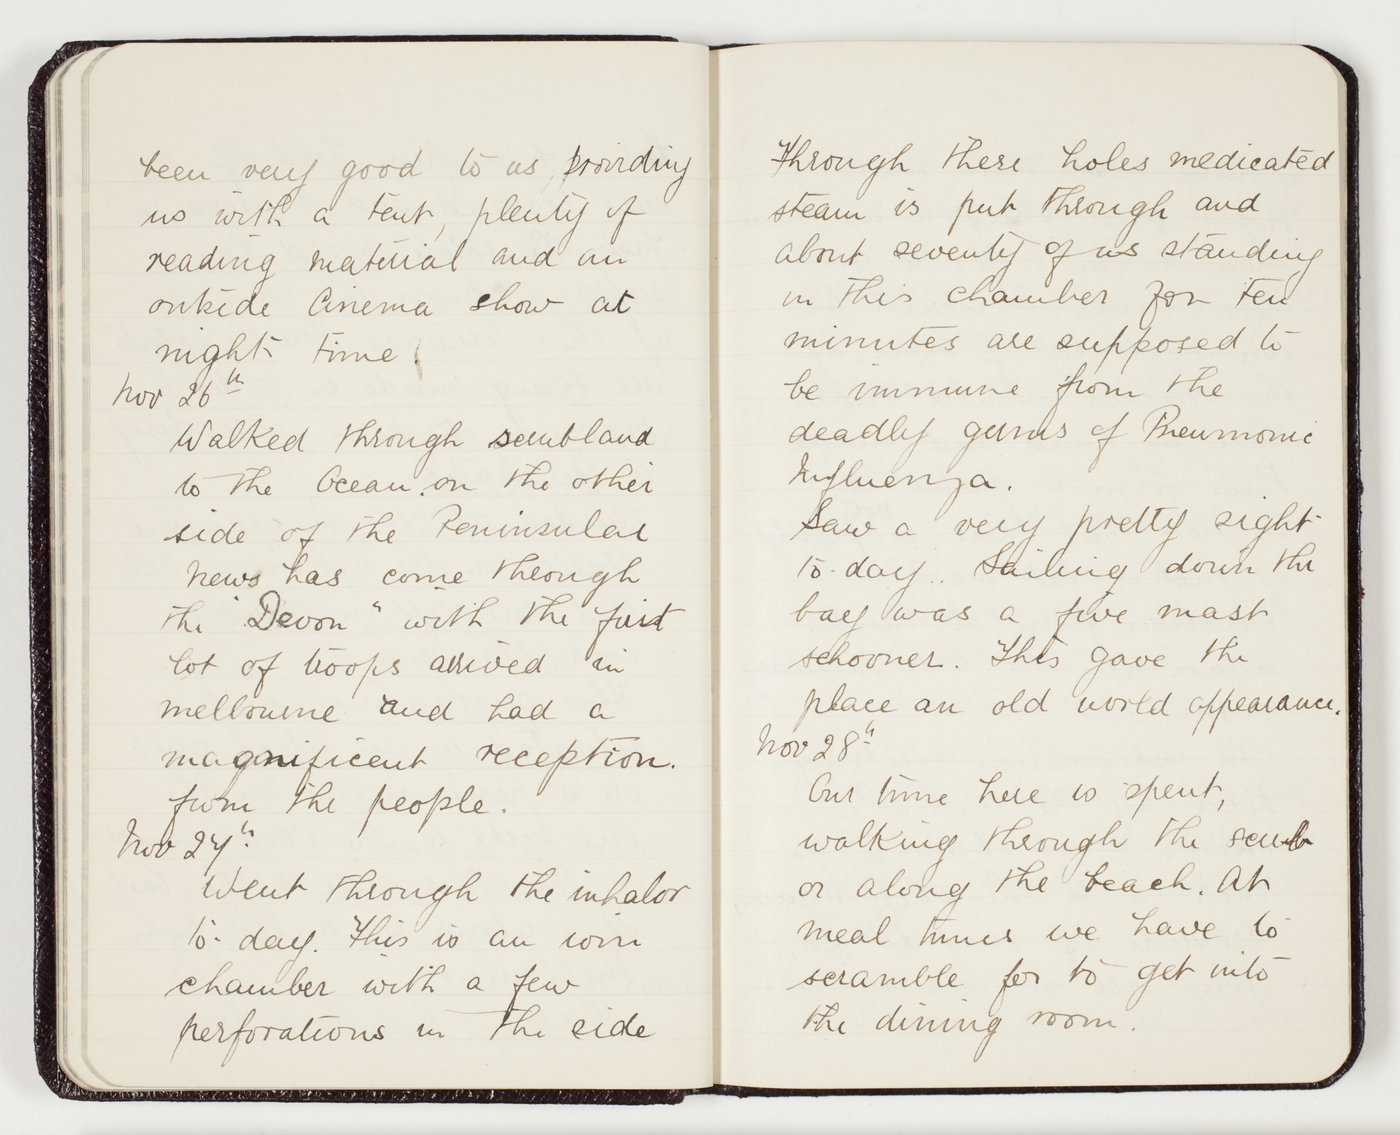 been very good to us, providing
us with a tent, plenty of
reading material and an
outside Cinema show at
night time.
Nov 26th
Walked through scrubland
to the Ocean on the other
side of the Peninsular
News has come through
the "Devon" with the first
lot of troops arrived in
Melbourne and had a
magnificent reception.
from the people.
Nov 27th
Went through the inhalor
to-day. This is an iron
chamber with a few
perforations in the side
through these holes medicated
steam is put through and
about seventy of us standing
in this chamber for ten
minutes are supposed to
be immune from the
deadly germs of Pneumonic
Influenza.
Saw a very pretty sight
to-day.. Sailing down the
bay was a five mast
schooner. This gave the
place an old world appearance.
Nov 28th
Our time here is spent,
walking through the scrub
or along the beach. At
meal times we have to
scramble for to get into
the dining room.